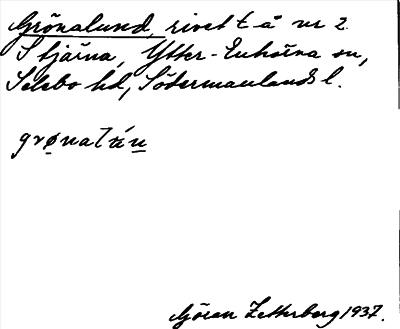 Grönalund, rivet t å nr 2
Stjärna, Ytter-Enhörna sn,
Selebo hd, Södermanlands l.
grønalún
Göran Zetterberg 1937.